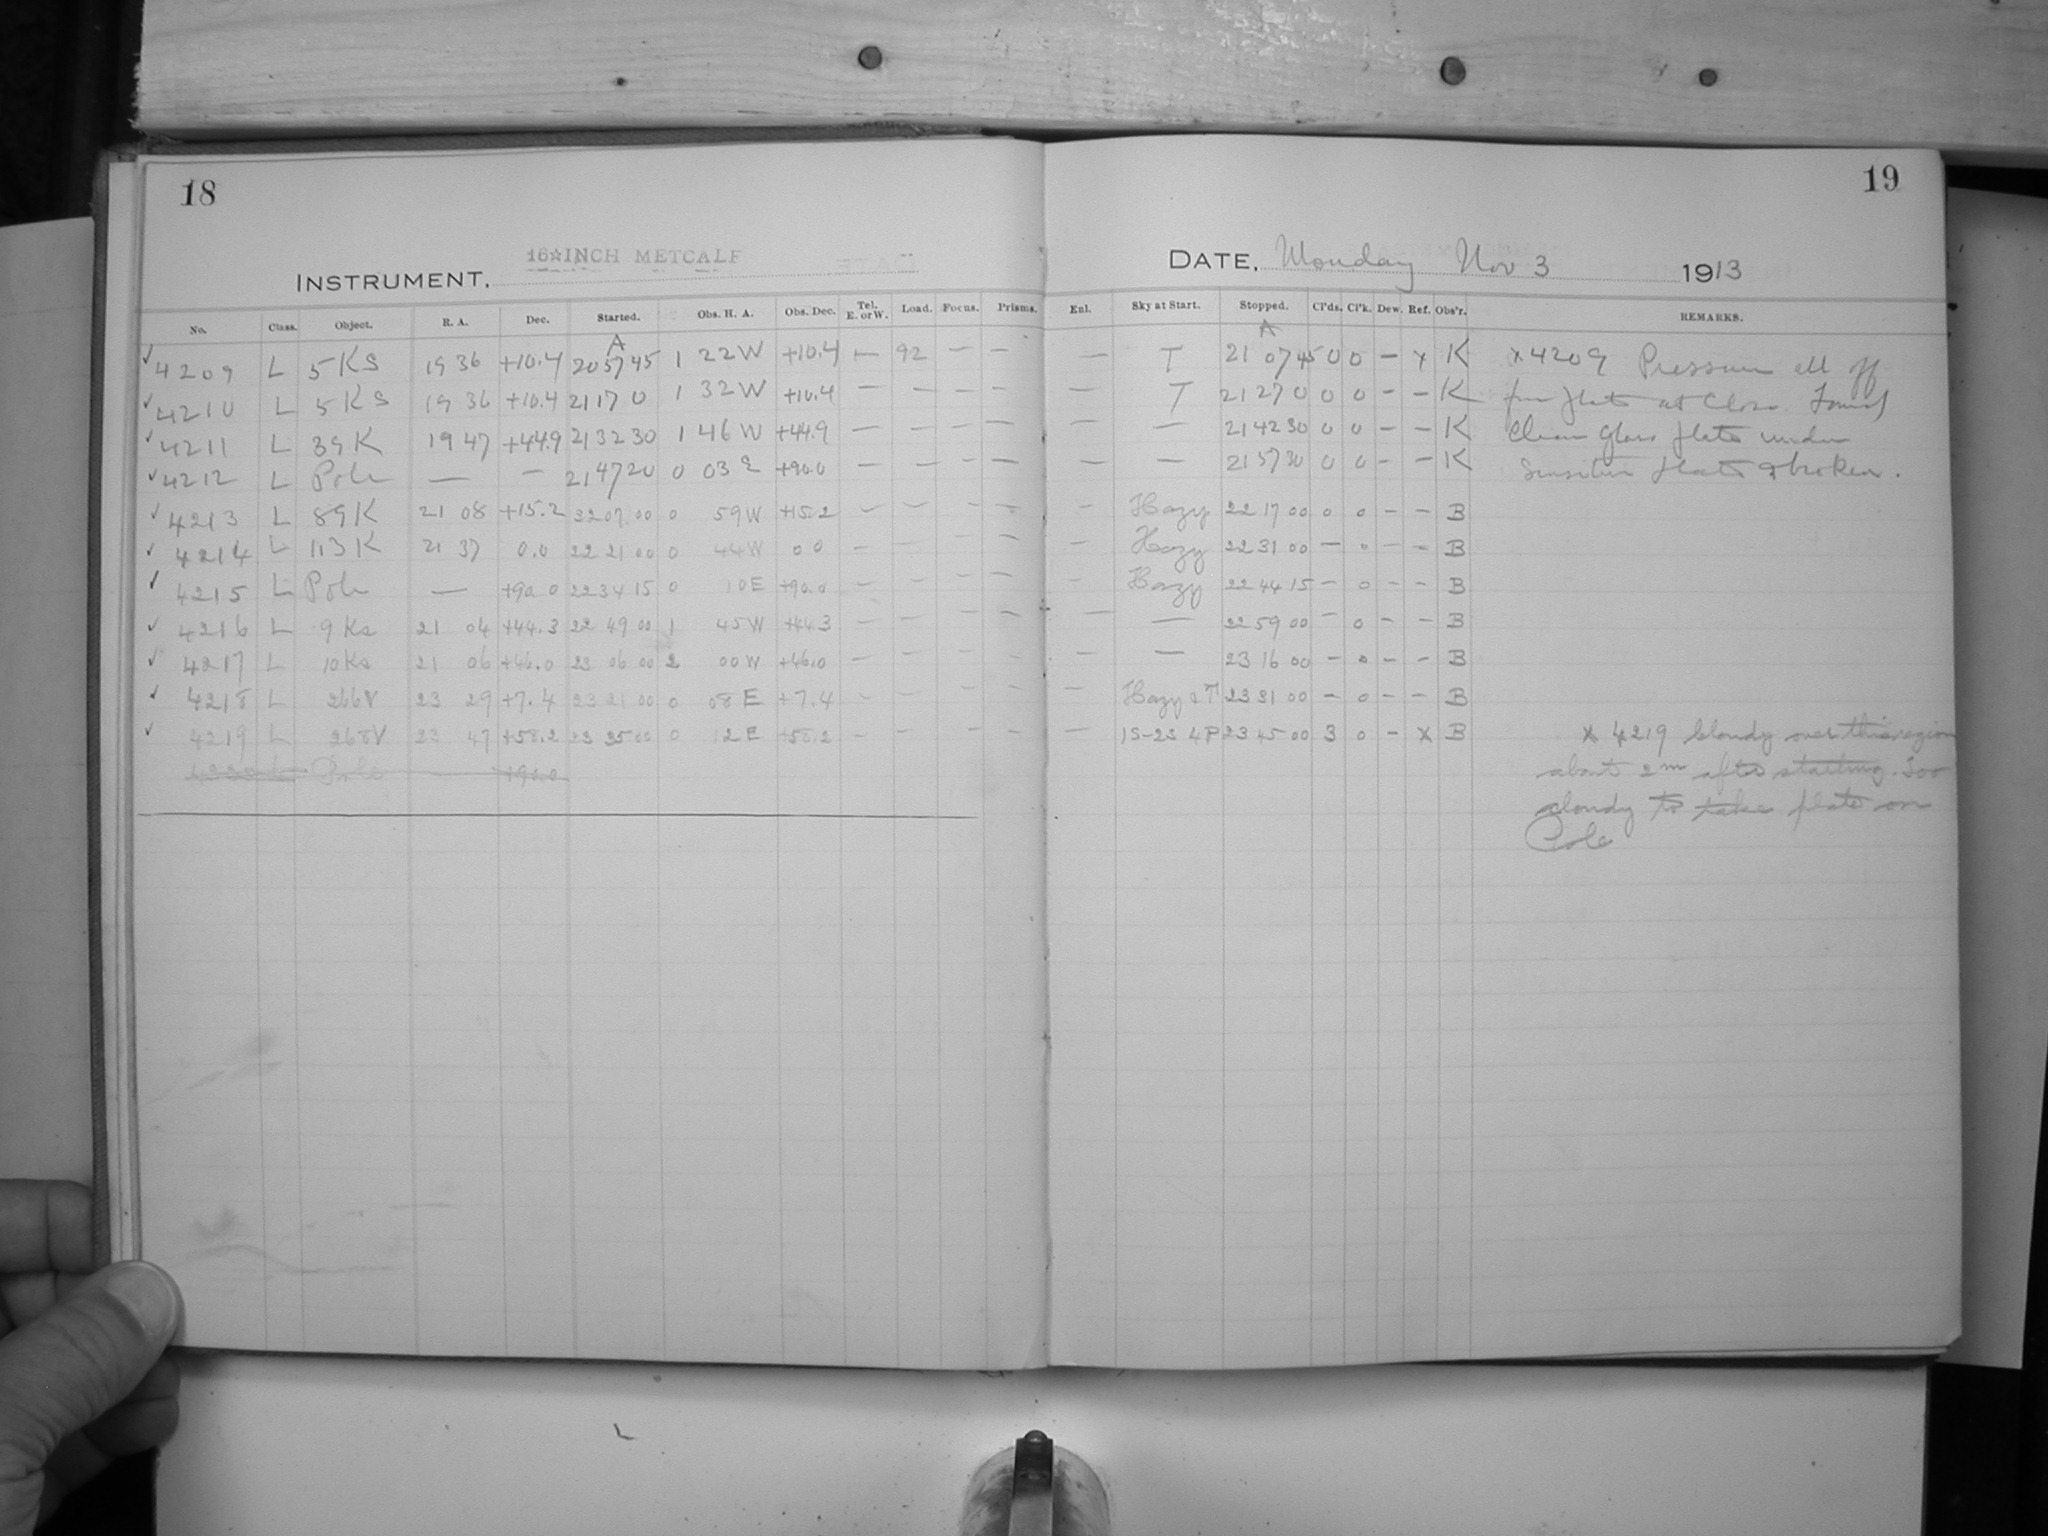 18
19
INSTRUMENT. 16-INCH METCALF
DATE, Monday Nov 3 1913
No. Class. Object. R. A. Dec. Started. Obs. H. A. Obs. Dec. Tel. E. or W. Load. Focus. Prisms. Enl. Sky at Start. Stopped. Cl'ds. Cl'k. Dew. Ref. Obs'r. REMARKS.
A A
✓ 4209 L 5 KS 19 36 +10.4 20 57 45 1 22 W +10.4 — 92 — — — T 21 07 45 0 0 – x K x 4209 Pressure all off
✓ 4210 L 5 KS 19 36 +10.4 21 17 0 1 32 W +10.4 — — — — — T 21 27 0 0 0 – – K from plate at close. Found
✓ 4211 L 39 K 19 47 +44.9 21 32 30 1 46 W +44.9 — — — — — — 21 42 30 0 0 – – K clean glass plate under
✓ 4212 L Pole — — 21 47 20 0 03 E +90.0 — — — — — — 21 57 30 0 0 – – K sensitive plate & broken.
✓ 4213 L 89 K 21 08 +15.2 22 07 00 0 59 W +15.2 — — — — — Hazy 22 17 00 0 0 – – B
✓ 4214 L 113 K 21 37 0.0 22 21 00 0 44 W 0 0 — — — — — Hazy 22 31 00 – 0 – – B
✓ 4215 L Pole — +90.0 22 34 15 0 10 E +90.0 — — — — — Hazy 22 44 15 – 0 – – B
✓ 4216 L 9 Ks 21 04 +44.3 22 49 00 1 45 W +44.3 — — — — — — 22 59 00 – 0 – – B
✓ 4217 L 10 Ks 21 06 +46.0 23 06 00 2 00 W +46.0 — — — — — — 23 16 00 – 0 – – B
✓ 4218 L 266 V 23 29 +7.4 23 21 00 0 08 E +7.4 — — — — — Hazy & T 23 31 00 – 0 – – B
✓ 4219 L 268 V 23 47 +58.2 23 35 00 0 12 E +58.2 — — — — — 1S-2S 4P 23 45 00 3 0 – x B x 4219 Cloudy over this region
4220 L Pole — +90.0 about 2m after starting. Too
cloudy to take plate on
Pole